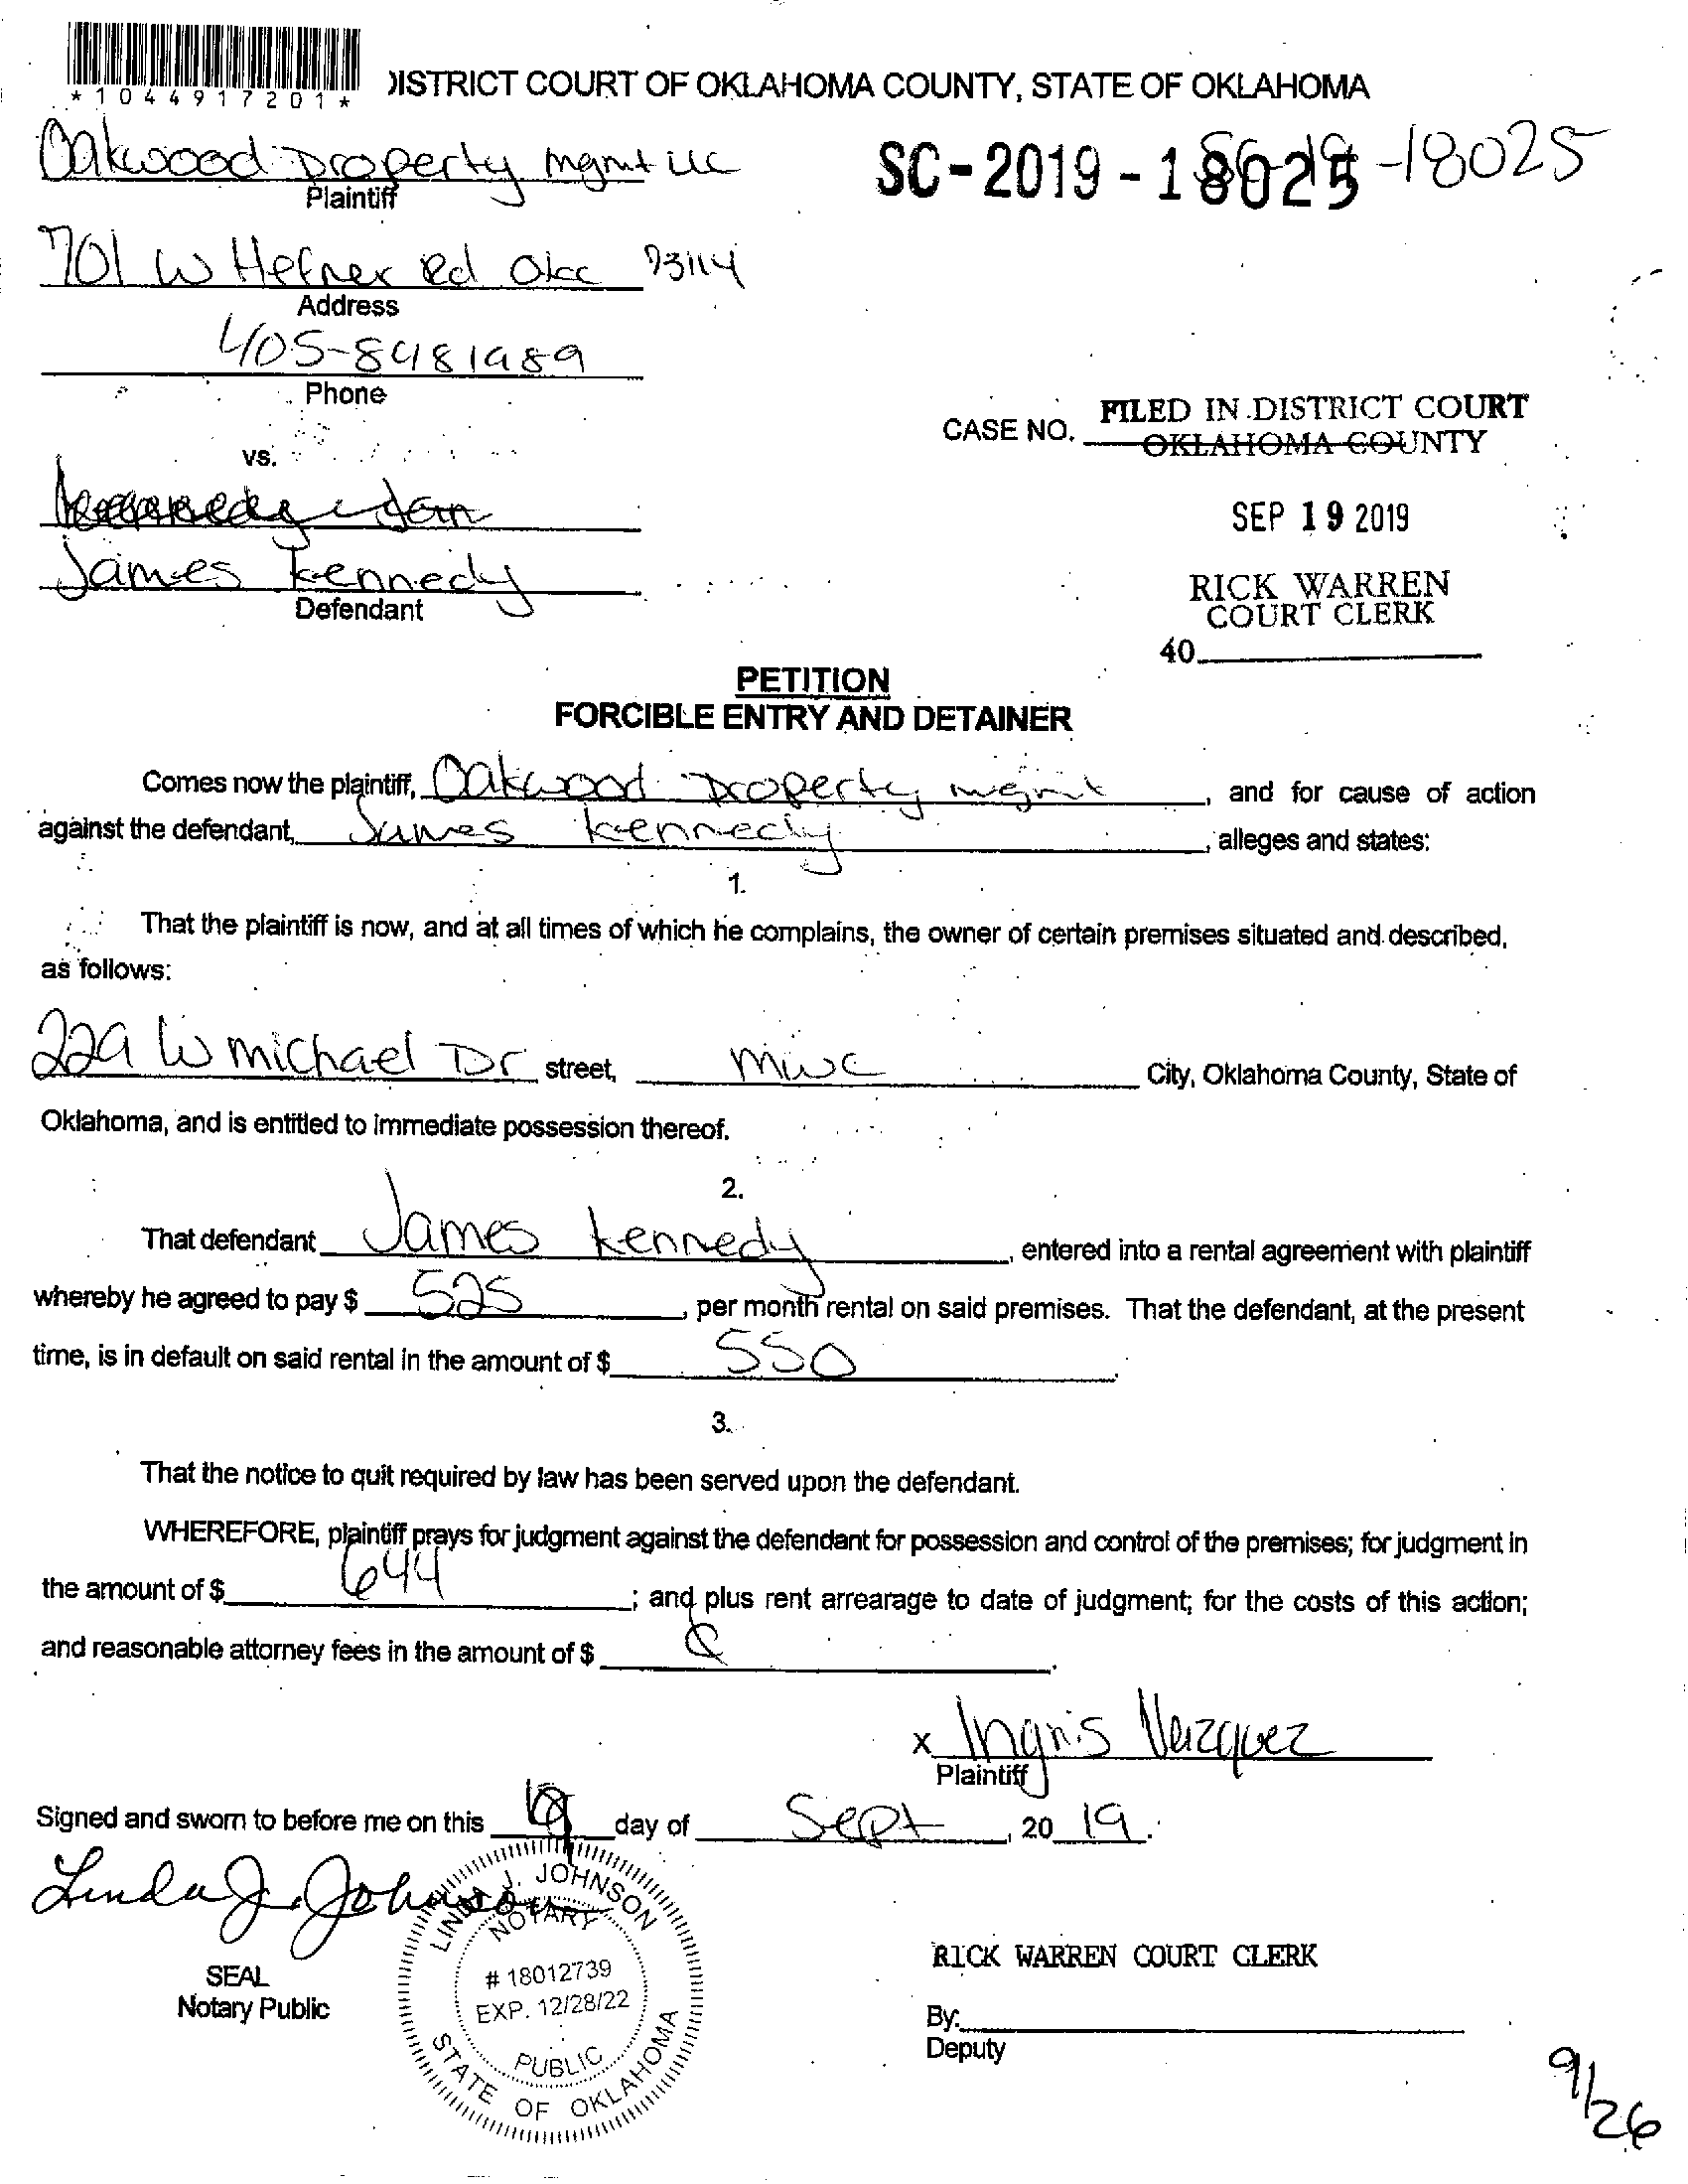 *1044917201*
DISTRICT COURT OF OKLAHOMA COUNTY, STATE OF OKLAHOMA
Oakwood Property mgmt llc
Plaintiff
SC-2019-18025 -18025
701 W Hefner Rd Okc 73114
Address
405-8481989
Phone
CASE NO.
FILED IN DISTRICT COURT
OKLAHOMA COUNTY
vs.
SEP 19 2019
James Kennedy
Defendant
RICK WARREN
COURT CLERK
40
PETITION
FORCIBLE ENTRY AND DETAINER
Comes now the plaintiff, Oakwood Property mgmt, and for cause of action
against the defendant, James Kennedy, alleges and states:
1.
That the plaintiff is now, and at all times of which he complains, the owner of certain premises situated and described,
as follows:
229 W michael Dr street, mwc City, Oklahoma County, State of
Oklahoma, and is entitled to immediate possession thereof.
2.
That defendant James Kennedy, entered into a rental agreement with plaintiff
whereby he agreed to pay $ 525, per month rental on said premises. That the defendant, at the present
time, is in default on said rental in the amount of $ 550.
3.
That the notice to quit required by law has been served upon the defendant.
WHEREFORE, plaintiff prays for judgment against the defendant for possession and control of the premises; for judgment in
the amount of $ 644; and plus rent arrearage to date of judgment; for the costs of this action;
and reasonable attorney fees in the amount of $
x Ingris Vazquez
Plaintiff
Signed and sworn to before me on this 19 day of Sept, 20 19.
Linda J. Johnson
LINDA J. JOHNSON
NOTARY
# 18012739
EXP. 12/28/22
PUBLIC
STATE OF OKLAHOMA
SEAL
Notary Public
RICK WARREN COURT CLERK
By:
Deputy
9/26